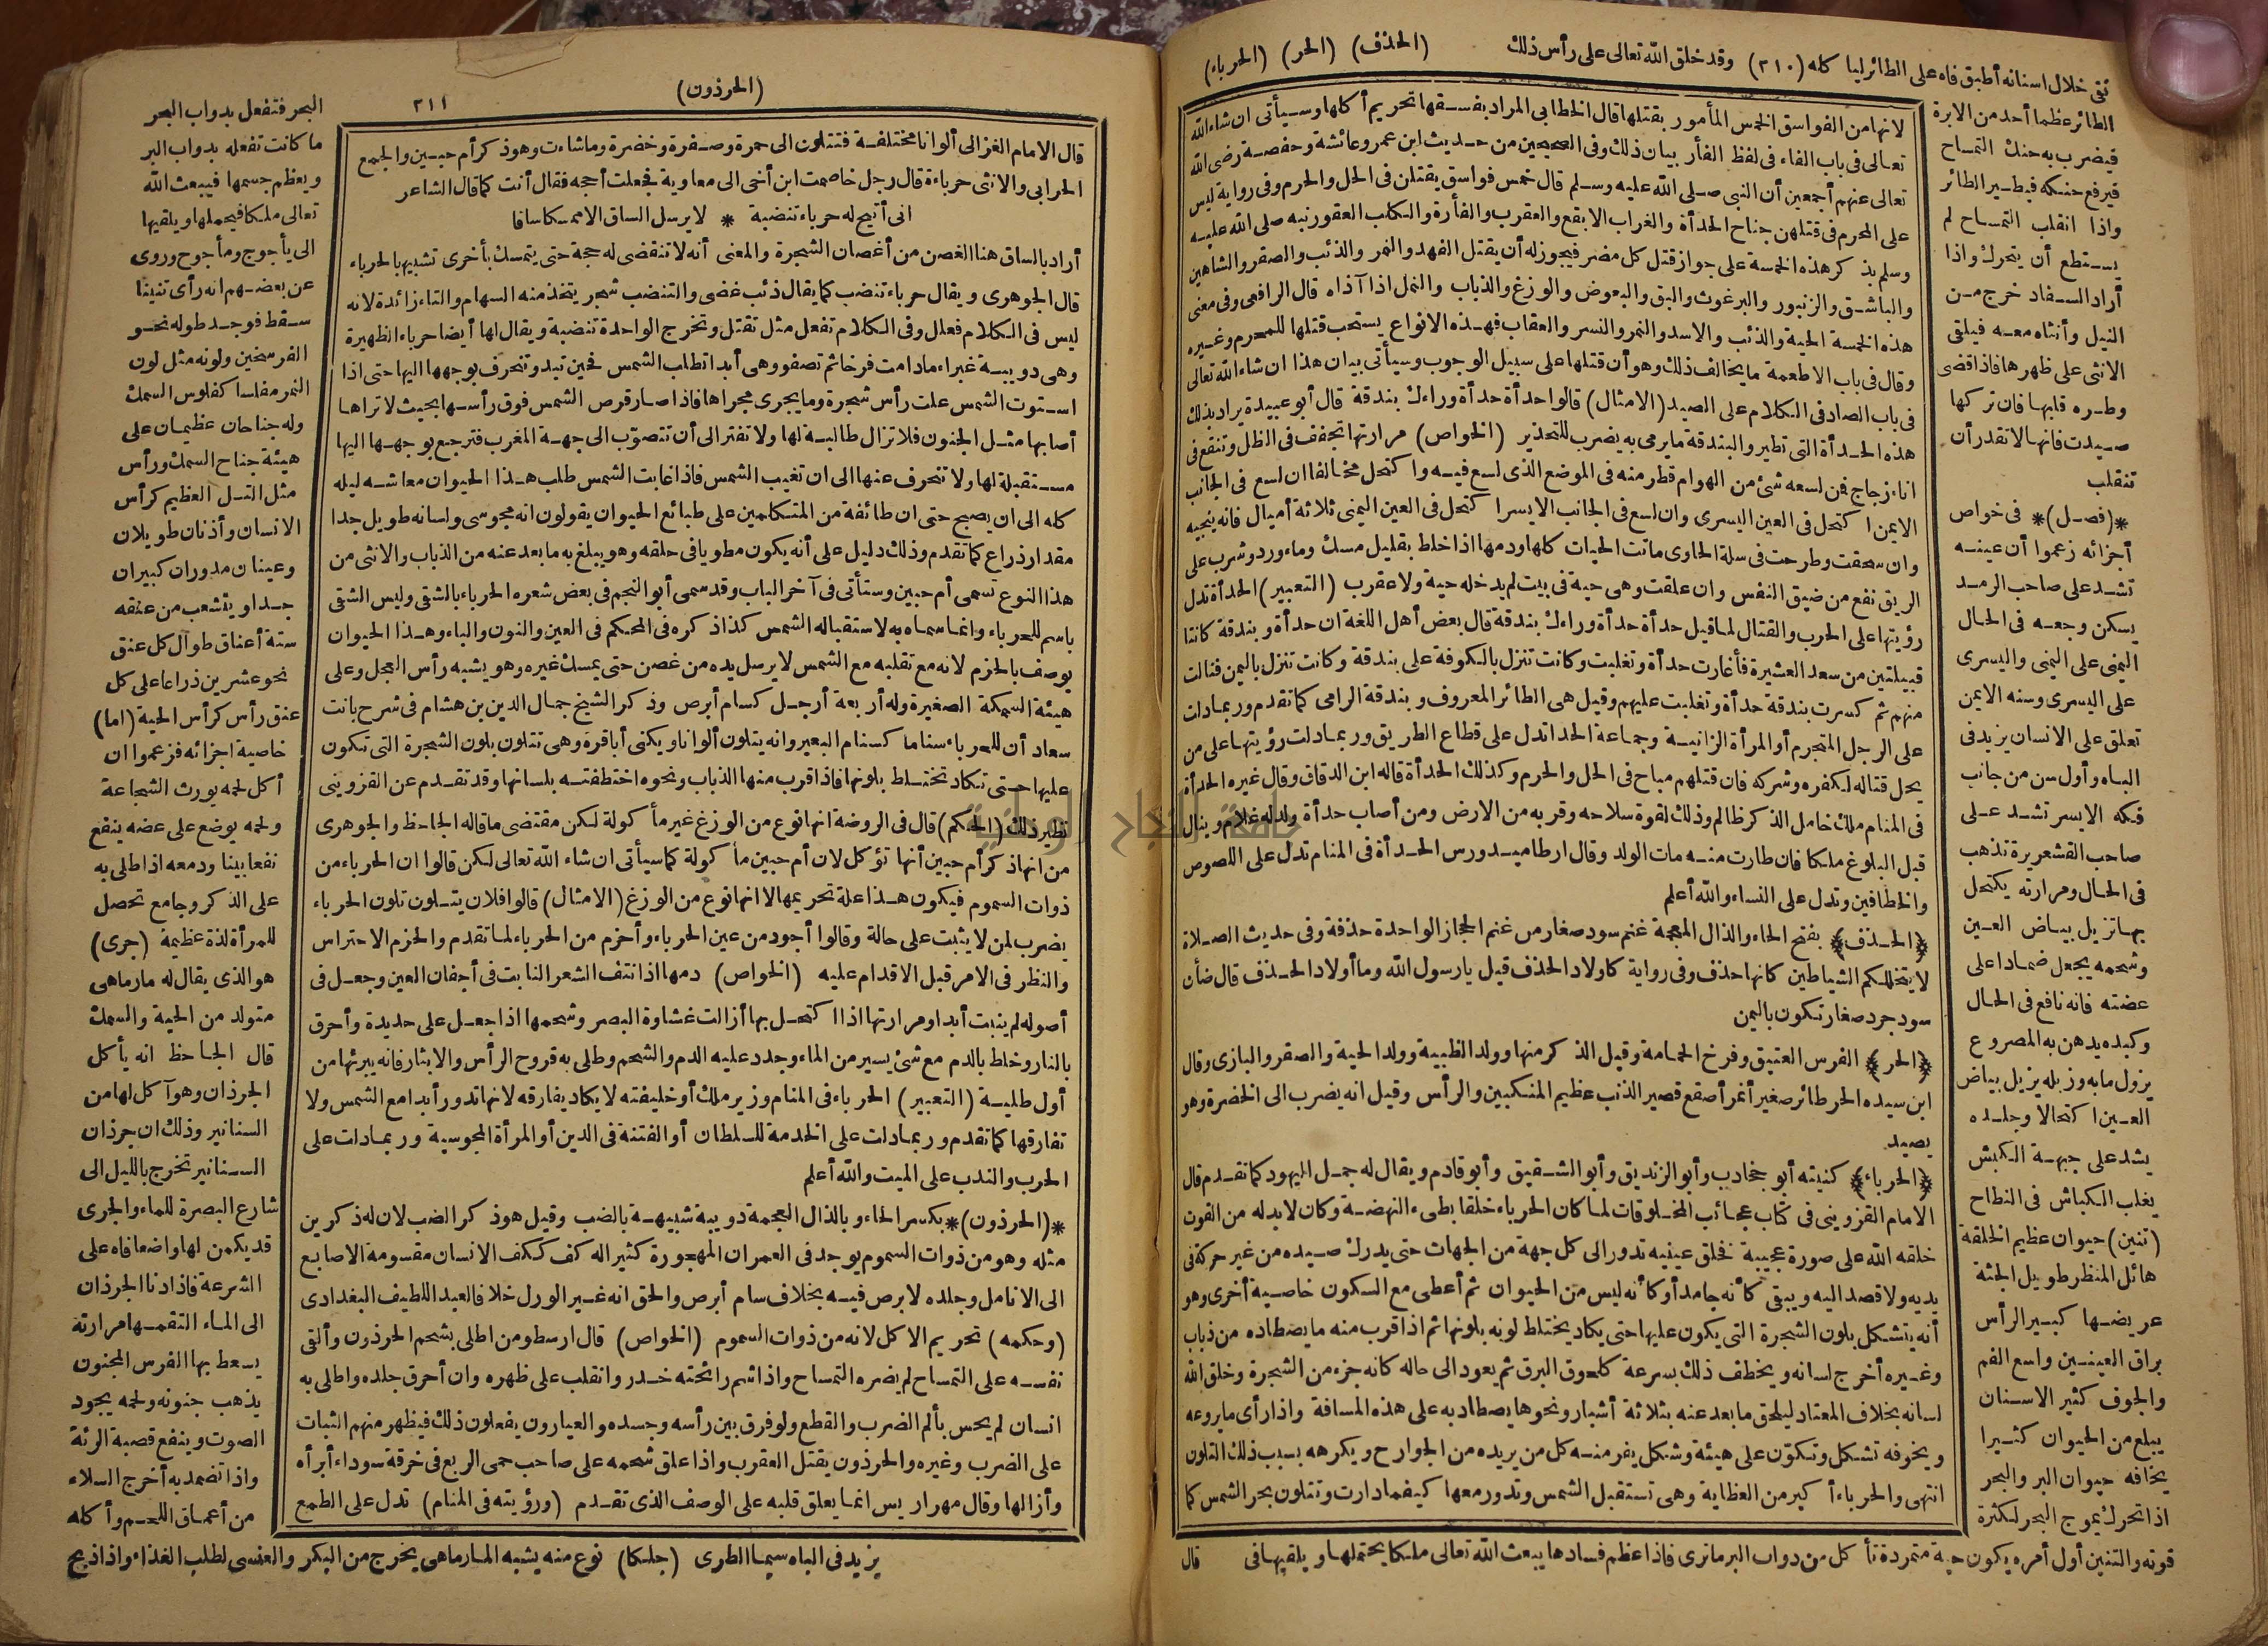 نقى خلال اسنانه أطبق فاه على الطائر ليا كله (٢١٠) وقد خلق الله تعالى على رأس ذلك (الحذف) (الحر) (الحرباء)
لانها من الفواسق الخمس المأمور بقتلها قال الخطابى المراد بفسقها تحريم أكلها وسيأتى ان شاء الله
تعالى فى باب الفاء فى لفظ الفأر بيان ذلك وفى الصحيحين من حديث ابن عمر وعائشة وحفصة رضى الله
تعالى عنهم أجمعين أن النبى صلى الله عليه وسلم قال خمس فواسق يقتلن فى الحل والحرم وفى رواية ليس
على المحرم فى قتلهن جناح الحدأة والغراب الابقع والعقرب والفأرة والكلب العقور نبه صلى الله عليه
وسلم بذكر هذه الخمسة على جواز قتل كل مضر فيجوز له أن يقتل الفهد والنمر والذئب والصقر والشاهين
والباشق والزنبور والبرغوث والبق والبعوض والوزغ والذباب والنمل اذا آذاه قال الرافعى وفى معنى
هذه الخمسة الحية والذئب والاسد والنمر والنسر والعقاب فهذه الانواع يستحب قتلها للمحرم وغيره
وقال فى باب الاطعمة ما يخالف ذلك وهو أن قتلها على سبيل الوجوب وسيأتى بيان هذا ان شاء الله تعالى
فى باب الصاد فى الكلام على الصيد (الامثال) قالوا حدأة حدأة وراءك بندقة قال أبو عبيدة يراد بذلك
هذه الحدأة التى تطير والبندقة ما يرمى به يضرب للتحذير (الخواص) مرارتها تجفف فى الظل وتنقع فى
اناء زجاج فمن لسعه شئ من الهوام قطر منه فى الموضع الذى لسع فيه واكتحل مخالفا ان لسع فى الجانب
الايمن اكتحل فى العين اليسرى وان لسع فى الجانب الايسر اكتحل فى العين اليمنى ثلاثة أميال فانه ينجيه
وان سحقت وطرحت فى سلة الحاوى ماتت الحيات كلها ودمها اذا خلط بقليل مسك وماء ورد وشرب على
الريق نفع من ضيق النفس وان علقت وهى حية فى بيت لم يدخله حية ولا عقرب (التعبير) الحدأة تدل
رؤيتها على الحرب والقتال لما قيل حدأة حدأة وراءك بندقة قال بعض أهل اللغة ان حدأة وبندقة كانتا
قبيلتين من سعد العشيرة فأغارت حدأة وتغلبت وكانت تنزل بالكوفة على بندقة وكانت تنزل باليمن فنالت
منهم ثم كسرت بندقة حدأة وتغلبت عليهم وقيل هى الطائر المعروف وبندقة الرامى كما تقدم وربما دلت
على الرجل المتجرم أو المرأة الزانية وجماعة الحدا تدل على قطاع الطريق وربما دلت رؤيتها على من
يحل قتاله لكفره وشركه فان قتلهم مباح فى الحل والحرم وكذلك الحدأة قاله ابن الدقاق وقال غيره الحدأة
فى المنام ملك خامل الذكر ظالم وذلك لقوة سلاحه وقربه من الارض ومن أصاب حدأة ولد له غلام وينال
قبل البلوغ ملكا فان طارت منه مات الولد وقال ارطاميدورس الحدأة فى المنام تدل على اللصوص
والخطافين وتدل على النساء والله أعلم
﴿الحذف﴾ بفتح الحاء والذال المعجمة غنم سود صغار من غنم الحجاز الواحدة حذفة وفى حديث الصلاة
لا يتخللكم الشياطين كانها حذف وفى رواية كاولاد الحذف قيل يارسول الله وما أولاد الحذف قال ضأن
سود جرد صغار تكون باليمن
﴿الحر﴾ الفرس العتيق وفرخ الحمامة وقيل الذكر منها وولد الظبية وولد الحية والصقر والبازى وقال
ابن سيده الحر طائر صغير أنمر أصقع قصير الذنب عظيم المنكبين والرأس وقيل انه يضرب الى الخضرة وهو
يصيد
﴿الحرباء﴾ كنيته أبو جخادب وأبو الزنديق وأبو الشقيق وأبو قادم ويقال له جمل اليهود كما تقدم قال
الامام القزوينى فى كتاب عجائب المخلوقات لما كان الحرباء خلقا بطىء النهضة وكان لا بد له من القوت
خلقه الله على صورة عجيبة فخلق عينيه تدور الى كل جهة من الجهات حتى يدرك صيده من غير حركة فى
يديه ولا قصد اليه ويبقى كأنه جامد أو كأنه ليس من الحيوان ثم أعطى مع السكون خاصية أخرى وهو
أنه يتشكل بلون الشجرة التى يكون عليها حتى يكاد يختلط لونه بلونها ثم اذا قرب منه ما يصطاده من ذباب
وغيره أخرج لسانه ويخطف ذلك بسرعة كلحوق البرق ثم يعود الى حاله كانه جزء من الشجرة وخلق الله
لسانه بخلاف المعتاد ليلحق ما بعد عنه بثلاثة أشبار ونحوها يصطاد به على هذه المسافة واذا رأى ما يروعه
ويخوفه تشكل وتكون على هيئة وشكل يفر منه كل من يريده من الجوارح ويكرهه بسبب ذلك التلون
انتهى والحرباء أكبر من العظاية وهى تستقبل الشمس وتدور معها كيفما دارت وتتلون بحر الشمس كما
قال
الطائر عظما أحد من الابرة
فيضرب به حنك التمساح
فيرفع حنكه فيطير الطائر
واذا انقلب التمساح لم
يستطع أن يتحرك واذا
أراد السفاد خرج من
النيل وأنثاه معه فيلقى
الانثى على ظهرها فاذا قضى
وطره قلبها فان تركها
صيدت فانها لا تقدر أن
تنقلب
*(فصل)* فى خواص
أجزائه زعموا أن عينه
تشد على صاحب الرمد
يسكن وجعه فى الحال
اليمنى على اليمنى واليسرى
على اليسرى وسنه الايمن
تعلق على الانسان يزيد فى
الباه وأول سن من جانب
فكه الايسر تشد على
صاحب القشعريرة تذهب
فى الحال ومرارته يكتحل
بها تزيل بياض العين
وشحمه يجعل ضمادا على
عضته فانه نافع فى الحال
وكبده يدهن به المصروع
يزول ما به وزبله يزيل بياض
العين اكتحالا وجلده
يشد على جبهة الكبش
يغلب الكباش فى النطاح
(تنين) حيوان عظيم الخلقة
هائل المنظر طويل الجثة
عريضها كبير الرأس
براق العينين واسع الفم
والجوف كثير الاسنان
يبلع من الحيوان كثيرا
يخافه حيوان البر والبحر
اذا تحرك يموج البحر لكثرة
قوته والتنين أول أمره يكون حية متمردة تأكل من دواب البر ما ترى فاذا عظم فسادها يبعث الله تعالى ملكا يحتملها ويلقيها فى
(الحرذون) ٢١١
قال الامام الغزالى ألوانا مختلفة فتتلون الى حمرة وصفرة وخضرة وما شاءت وهو ذكر أم حبين والجمع
الحرابى والانثى حرباءة قال رجل خاصمت ابن أخى الى معاوية فجعلت أحجه فقال أنت كما قال الشاعر
انى أتيح له حرباء تنضبة * لا يرسل الساق الا ممسكا ساقا
أراد بالساق هنا الغصن من أغصان الشجرة والمعنى أنه لا تنقضى له حجة حتى يتمسك بأخرى تشبيها بالحرباء
قال الجوهرى ويقال حرباء تنضب كما يقال ذئب غضى والتنضب شجر يتخذ منه السهام والتاء زائدة لانه
ليس فى الكلام فعلل وفى الكلام تفعل مثل تقتل وتخرج الواحدة تنضبة ويقال لها أيضا حرباء الظهيرة
وهى دويبة غبراء ما دامت فرخا ثم تصفو وهى أبدا تطلب الشمس فحين تبدو تنحرف بوجهها اليها حتى اذا
استوت الشمس علت رأس شجرة وما يجرى مجراها فاذا صار قرص الشمس فوق رأسها بحيث لا تراها
أصابها مثل الجنون فلا تزال طالبة لها ولا تفتر الى أن تتصوب الى جهة المغرب فترجع بوجهها اليها
مستقبلة لها ولا تنحرف عنها الى ان تغيب الشمس فاذا غابت الشمس طلب هذا الحيوان معاشه ليله
كله الى ان يصبح حتى ان طائفة من المتكلمين على طبائع الحيوان يقولون انه مجوسى ولسانه طويل جدا
مقدار ذراع كما تقدم وذلك دليل على أنه يكون مطويا فى حلقه وهو يبلغ به ما بعد عنه من الذباب والانثى من
هذا النوع تسمى أم حبين وستأتى فى آخر الباب وقد سمى أبو النجم فى بعض شعره الحرباء بالشقى وليس الشقى
باسم للحرباء وانما سماه به لاستقباله الشمس كذا ذكره فى المحكم فى العين والنون والباء وهذا الحيوان
يوصف بالحزم لانه مع تقلبه مع الشمس لا يرسل يده من غصن حتى يمسك غيره وهو يشبه رأس العجل وعلى
هيئة السمكة الصغيرة وله أربعة أرجل كسام أبرص وذكر الشيخ جمال الدين بن هشام فى شرح بانت
سعاد أن للحرباء سناما كسنام البعير وانه يتلون ألوانا ويكنى أبا قرة وهى تتلون بلون الشجرة التى تكون
عليها حتى تكاد تختلط بلونها فاذا قرب منها الذباب ونحوه اختطفته بلسانها وقد تقدم عن القزوينى
نظير ذلك (الحكم) قال فى الروضة انها نوع من الوزغ غير مأكولة لكن مقتضى ما قاله الجاحظ والجوهرى
من انها ذكر أم حبين أنها تؤكل لان أم حبين مأكولة كما سيأتى ان شاء الله تعالى لكن قالوا ان الحرباء من
ذوات السموم فيكون هذا علة تحريمها لا انها نوع من الوزغ (الامثال) قالوا فلان يتلون تلون الحرباء
يضرب لمن لا يثبت على حالة وقالوا أجود من عين الحرباء وأحزم من الحرباء لما تقدم والحزم الاحتراس
والنظر فى الامر قبل الاقدام عليه (الخواص) دمها اذا نتف الشعر النابت فى أجفان العين وجعل فى
أصوله لم ينبت أبدا ومرارتها اذا اكتحل بها أزالت غشاوة البصر وشحمها اذا جعل على حديدة وأحرق
بالنار وخلط بالدم مع شئ يسير من الماء وجدد عليه الدم والشحم وطلى به قروح الرأس والابثار فانه يبرئها من
أول طلية (التعبير) الحرباء فى المنام وزير ملك أو خليفته لا يكاد يفارقه لانها تدور أبدا مع الشمس ولا
تفارقها كما تقدم وربما دلت على الخدمة للسلطان أو الفتنة فى الدين أو المرأة المجوسية وربما دلت على
الحرب والندب على الميت والله أعلم
*(الحرذون)* بكسر الحاء وبالذال المعجمة دويبة شبيهة بالضب وقيل هو ذكر الضب لان له ذكرين
مثله وهو من ذوات السموم يوجد فى العمران المهجورة كثيرا له كف ككف الانسان مقسومة الاصابع
الى الانامل وجلده لا برص فيه بخلاف سام أبرص والحق انه غير الورل خلافا لعبد اللطيف البغدادى
(وحكمه) تحريم الاكل لانه من ذوات السموم (الخواص) قال ارسطو من اطلى بشحم الحرذون وألقى
نفسه على التمساح لم يضره التمساح واذا شم رائحته خدر وانقلب على ظهره وان أحرق جلده واطلى به
انسان لم يحس بألم الضرب والقطع ولو فرق بين رأسه وجسده والعيارون يفعلون ذلك فيظهر منهم الثبات
على الضرب وغيره والحرذون يقتل العقرب واذا علق شحمه على صاحب حمى الربع فى خرقة سوداء أبرأه
وأزالها وقال مهراريس انما يعلق قلبه على الوصف الذى تقدم (ورؤيته فى المنام) تدل على الطمع
البحر فتفعل بدواب البحر
ما كانت تفعله بدواب البر
ويعظم جسمها فيبعث الله
تعالى ملكا فيحملها ويلقيها
الى يأجوج ومأجوج وروى
عن بعضهم انه رأى تنينا
سقط فوجد طوله نحو
الفرسخين ولونه مثل لون
النمر مفلسا كفلوس السمك
وله جناحان عظيمان على
هيئة جناح السمك ورأس
مثل التل العظيم كرأس
الانسان وأذنان طويلان
وعينان مدوران كبيران
جدا ويتشعب من عنقه
ستة أعناق طوال كل عنق
نحو عشرين ذراعا على كل
عنق رأس كرأس الحية (اما)
خاصية اجزائه فزعموا ان
أكل لحمه يورث الشجاعة
ولحمه يوضع على عضه ينفع
نفعا بينا ودمعه اذا طلى به
على الذكر وجامع تحصل
للمرأة لذة عظيمة (جرى)
هو الذى يقال له مارماهى
متولد من الحية والسمك
قال الجاحظ انه يأكل
الجرذان وهو آكل لها من
السنانير وذلك ان جرذان
السنانير تخرج بالليل الى
شارع البصرة للماء والجرى
قد يكمن لها واضعا فاه على
الشرعة فاذا دنا الجرذان
الى الماء التقمها مرارته
يسعط بها الفرس المجنون
يذهب جنونه ولحمه يجود
الصوت وينفع قصبة الرئة
واذا تضمد به أخرج السلاء
من أعماق اللحم وأكله
يزيد فى الباه سيما الطرى (جلكا) نوع منه يشبه المارماهى يخرج من البكر والعشى لطلب الغذاء واذا ذبح